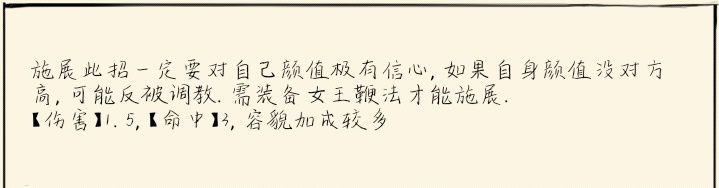 施展此招一定要对自己颜值极有信心,如果自身颜值没对方
高,可能反被调教.需装备女王鞭法才能施展.
【伤害】1.5,【命中】3,容貌加成较多